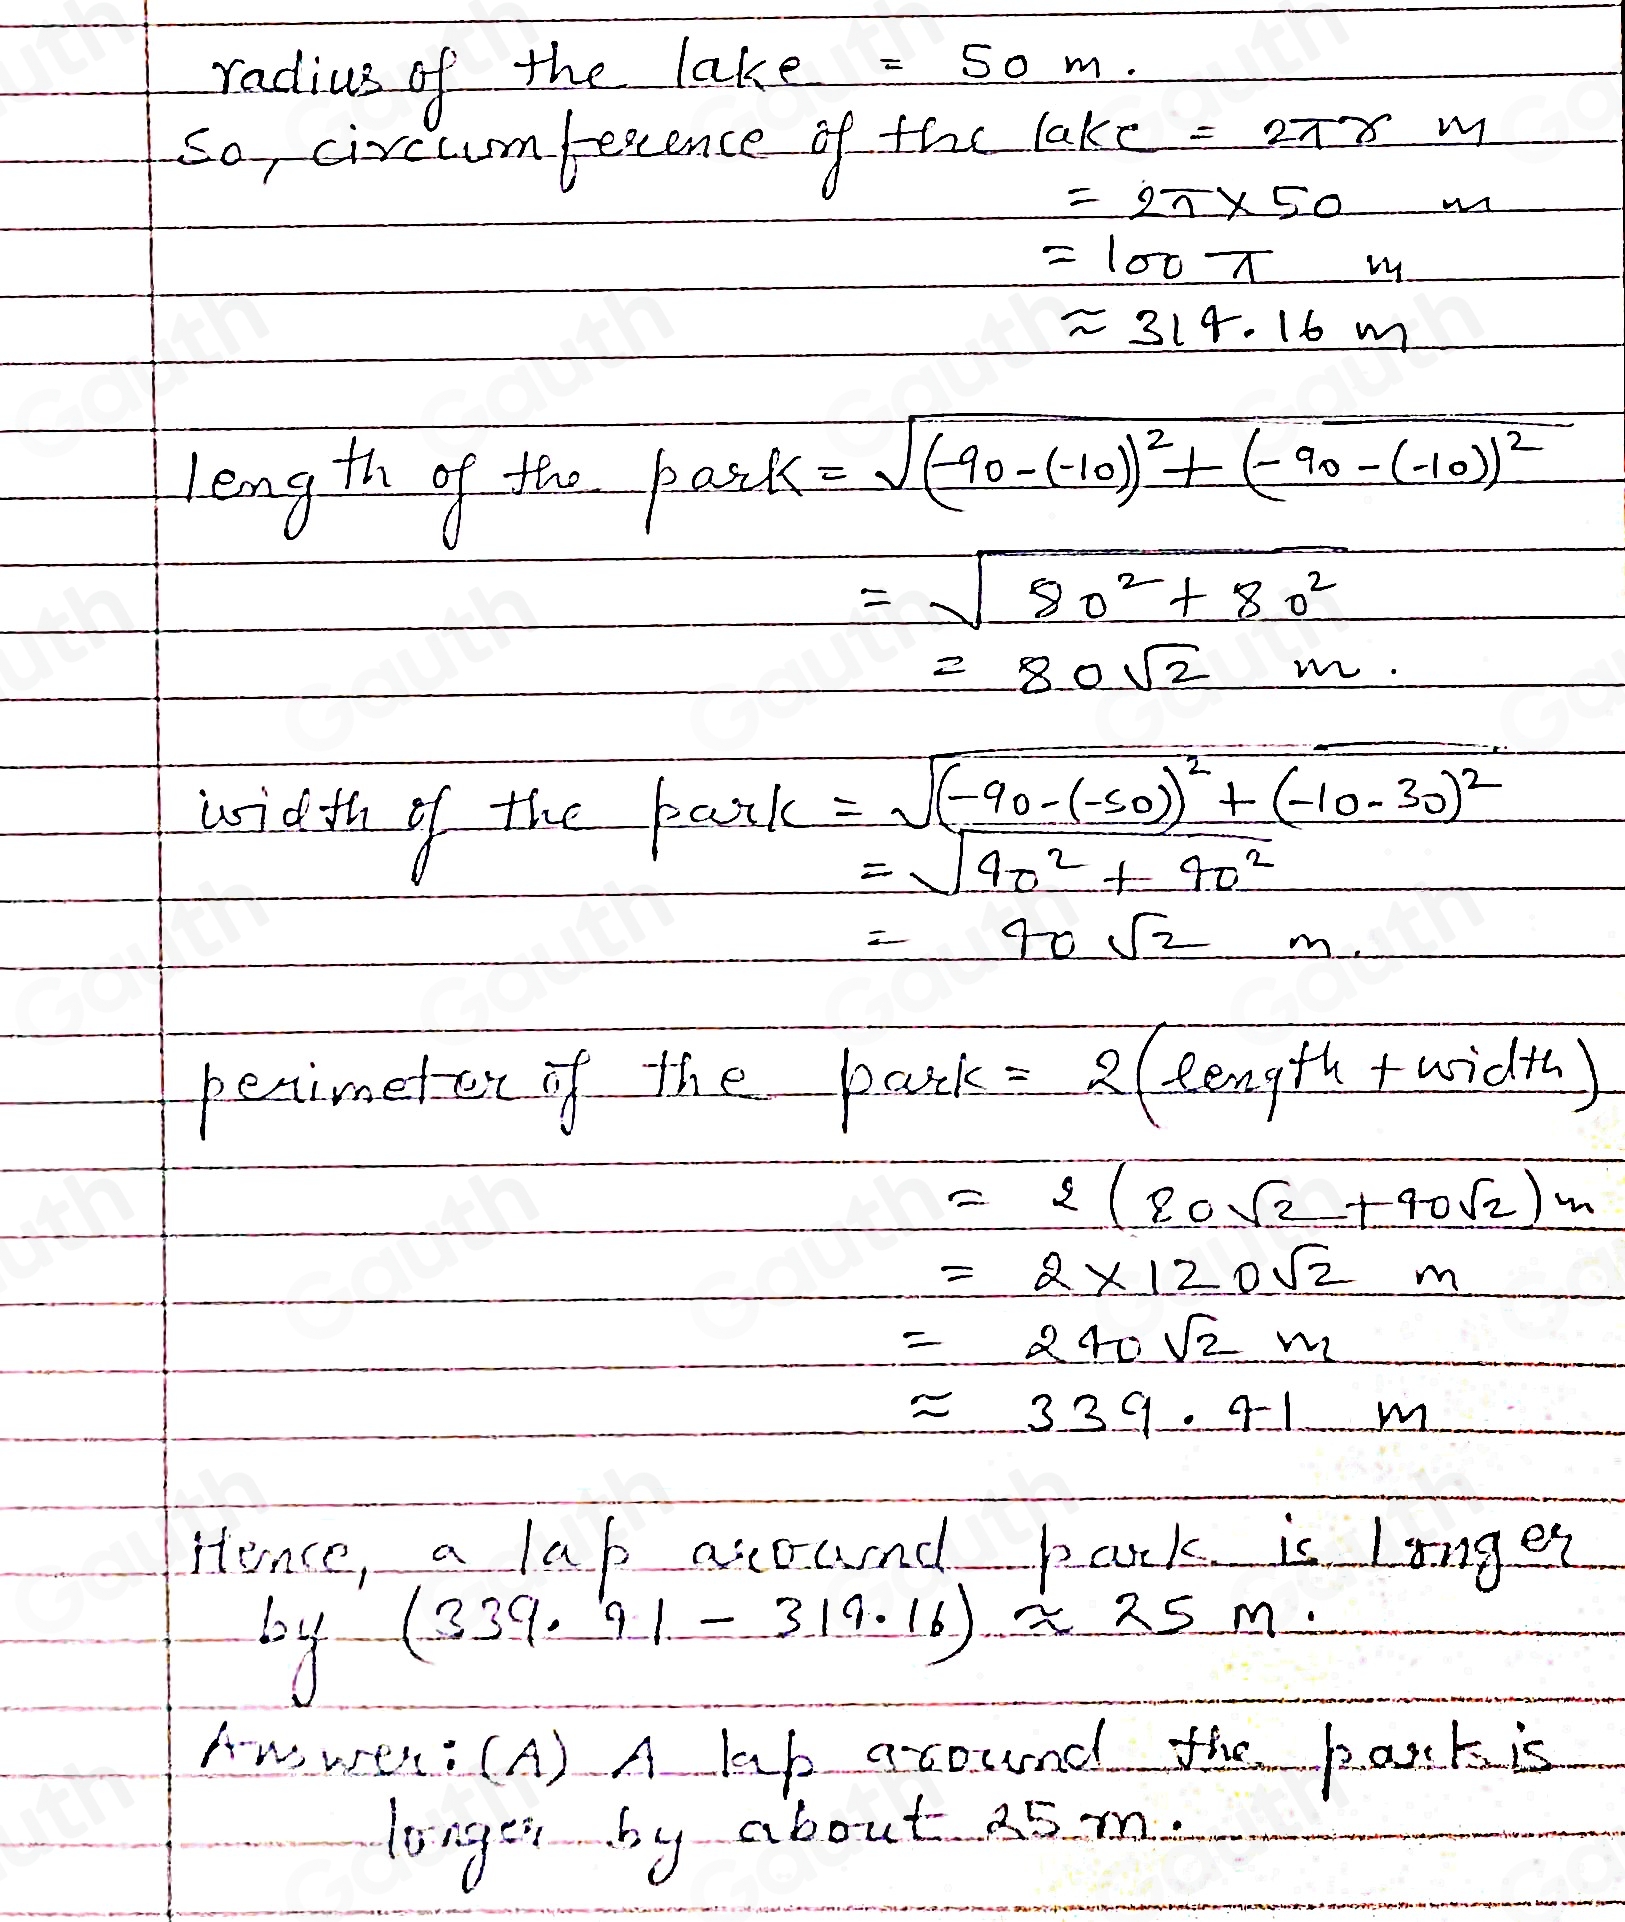 radius of the lake = 50 m.
So, circumference of the lake = 2πr m
= 2π×50 m
= 100 π m
≈ 314.16 m
length of the park = √(-90-(-10))² + (-90-(-10))²
= √80² + 80²
= 80√2 m.
width of the park = √(-90-(-50))² + (-10-30)²
= √40² + 40²
= 40√2 m.
perimeter of the park = 2(length + width)
= 2(80√2 + 40√2) m
= 2×120√2 m
= 240√2 m
≈ 339.41 m
Hence, a lap around park is longer
by (339.41 - 314.16) ≈ 25 m.
Answer: (A) A lap around the park is
longer by about 25 m.